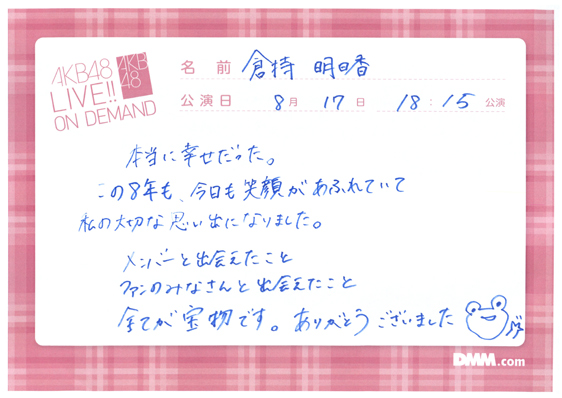 AKB48
LIVE!!
ON DEMAND
AKB
48
名 前 倉持 明日香
公演日 8月 17日 18:15公演
本当に幸せだった。
この8年も、今日も笑顔があふれていて
私の大切な思い出になりました。
メンバーと出会えたこと
ファンのみなさんと出会えたこと
全てが宝物です。ありがとうございました
DMM.com